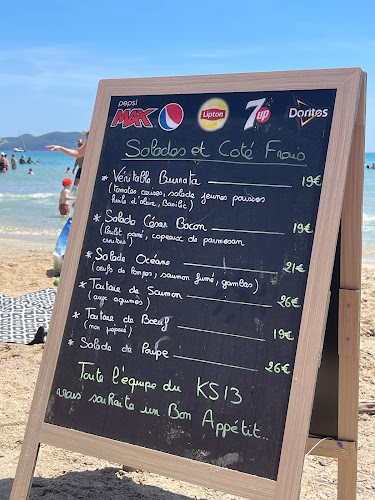 pepsi
MAX
Lipton
7up
Doritos
Salades et Coté Frais
* Véritable Burrata 19€
(Tomates cerises, salade jeunes pousses
huile d'olive, Basilic)
* Salade César Bacon 19€
(Poulet pané, copeaux de parmesan
croutons)
* Salade Océane 21€
(oeufs de lompes, saumon fumé, gambas)
* Tartare de Saumon 26€
(aux agrumes)
* Tartare de Boeuf 19€
(non préparé)
* Salade de Poulpe 26€
Toute l'équipe du KS13
vous souhaite un Bon Appétit..